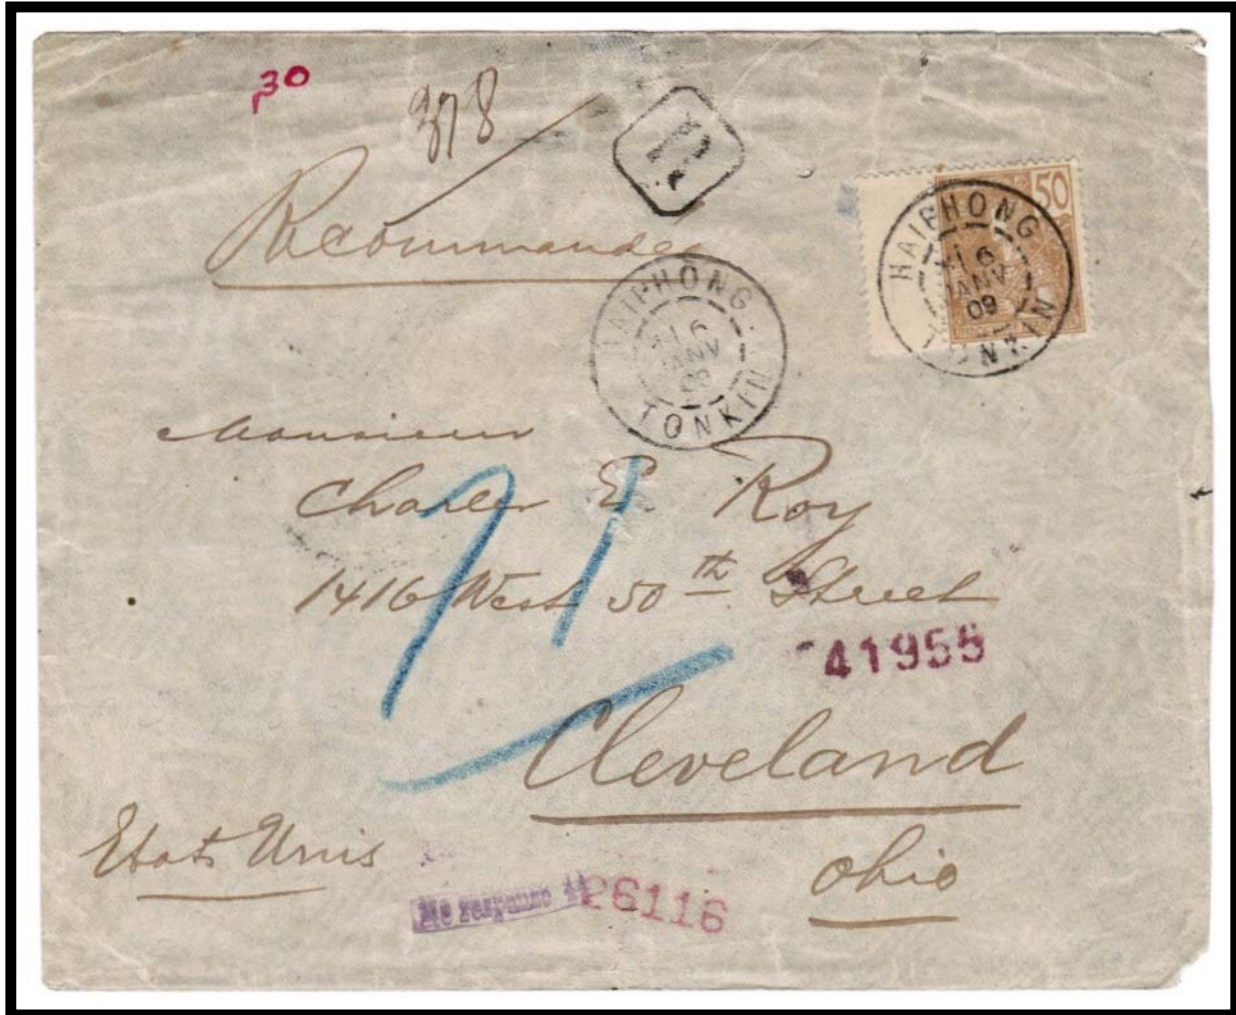 30
378
R
Recommandée
50
HAIPHONG
16
JANV
09
TONKIN
HAIPHONG
16
JANV
09
TONKIN
Monsieur
Charles E. Roy
1416 West 50th Street
41955
Cleveland
Ohio
Etats Unis
No response
26116